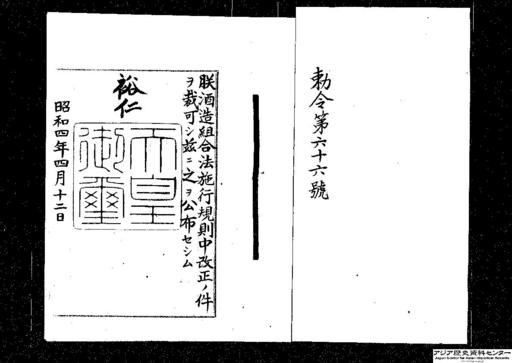 勅令第六十六號
朕酒造組合法施行規則中改正ノ件
ヲ裁可シ茲ニ之ヲ公布セシム
裕仁
天皇
御璽
昭和四年四月十二日
アジア歴史資料センター
Japan Center for Asian Historical Records